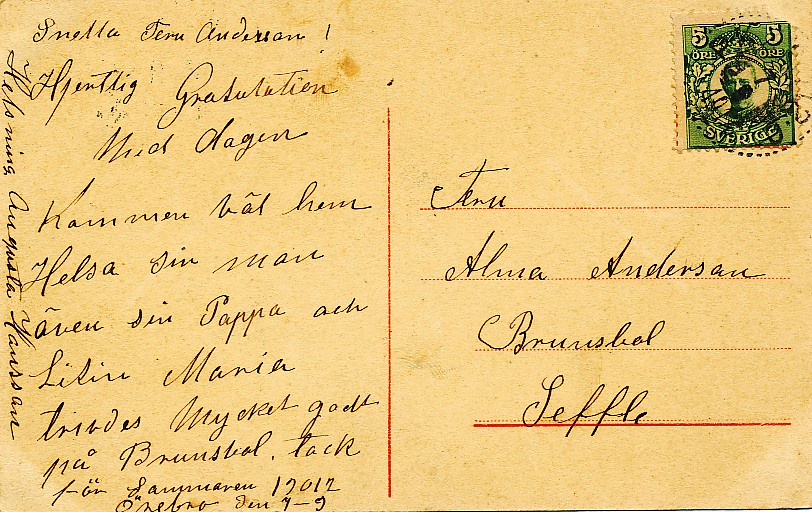 Snella Fru Anderson!
Hjerttlig Gratulation
Med dagen
Kommen väl hem
Helsa sin man
även sin Pappa och
Litin Maria
trivdes Mycket godt
på Brunsbol. tack
för Sammaren 19012
Örebro den 7-9
Helsning Augusta Hanssan
5 5
ÖRE ÖRE
SVERIGE
Fru
Alma Andersan
Brunsbol
Seffle